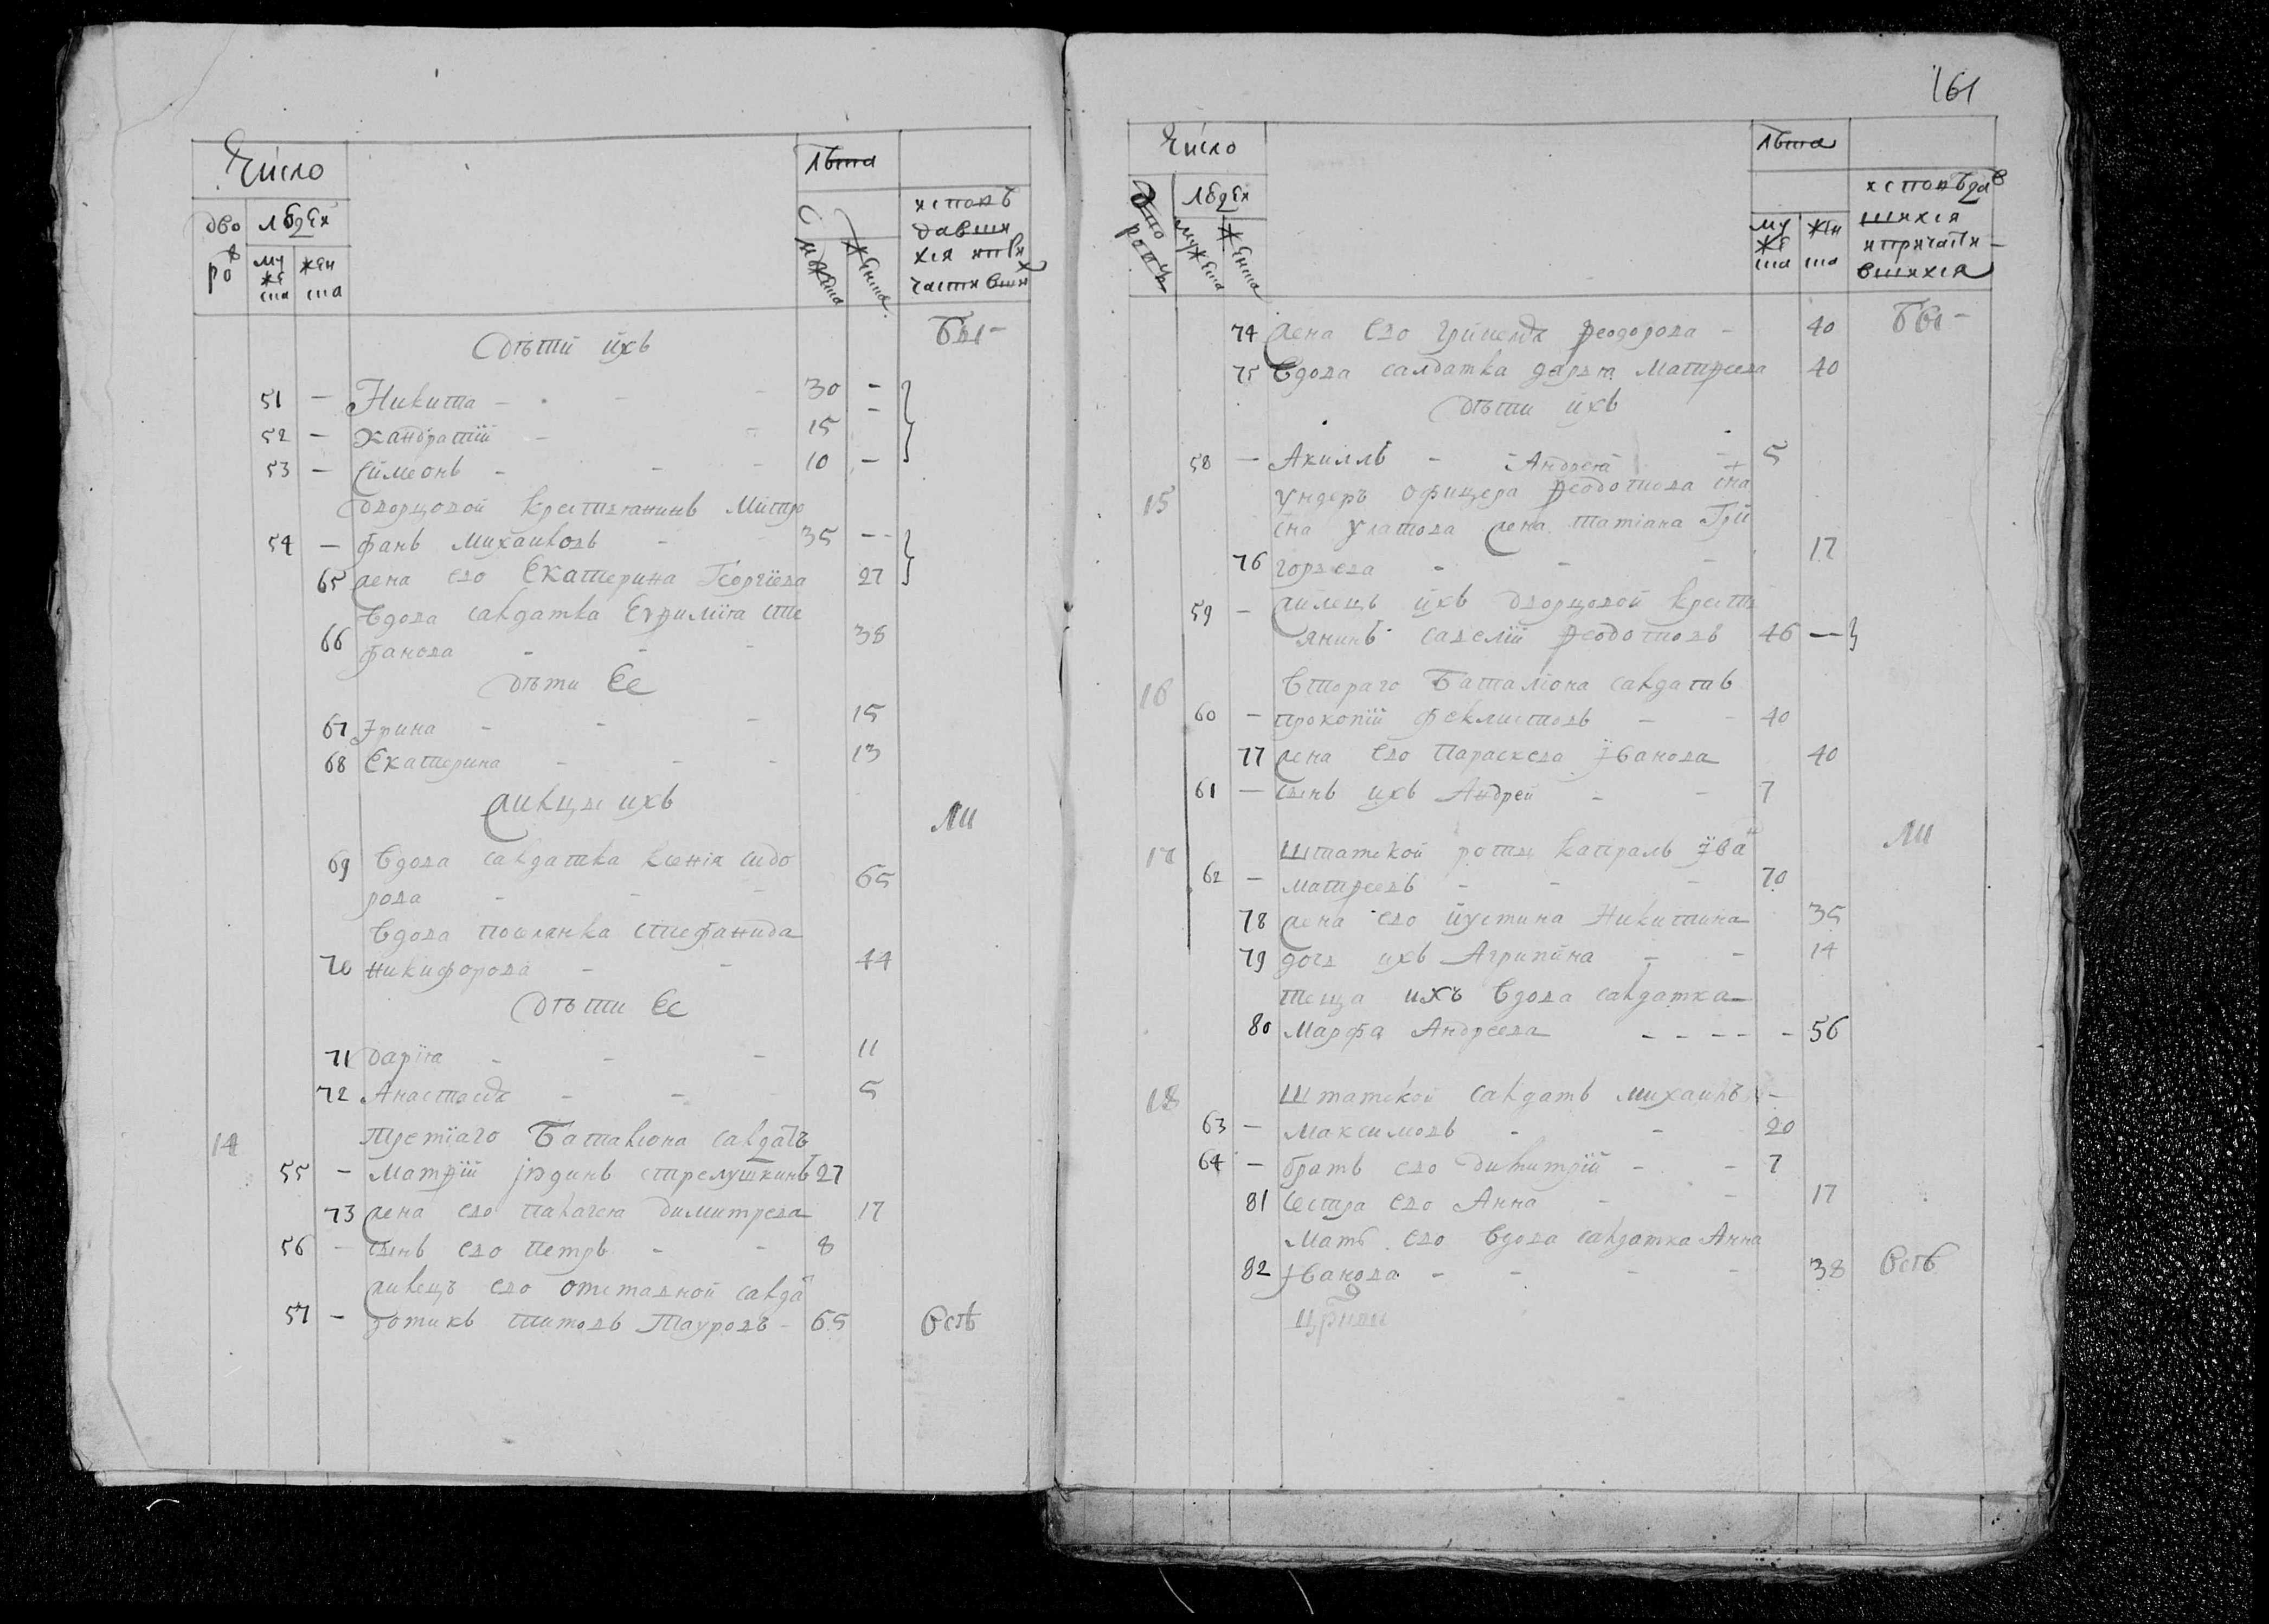 Число
лѣта
дворовъ
людей
мужеска
женска
мужеска
женска
исповѣ
давши
хся и при
частивших
Бы-
Дѣти ихъ
51 — Никита - - - 30 -
52 — Кандратïй - - 15 -
53 — Симеонъ - - - 10 —
Дворцовой крестьянинъ Митро
54 — фанъ Михаиловъ - 35 --
65 жена ево Екатерина Георгïева 27
Вдова салдатка Еѵѳимïя Сте
66 фанова - - - 38
Дѣти Ее
67 Ирина - - - 15
68 Екатерина - - - 13
Жильцы ихъ
ли
69 Вдова салдатка Ксенïя Сидо
рова - - - 65
Вдова посацка Стефанида
70 Никифорова - - 44
Дѣти Ее
71 Дарïя - - - 11
72 Анастасïя - - - 5
14 Третïаго Баталïона салдатъ
55 — Матѳïй Юдинъ Стрелушкинъ 27
73 жена ево Палагея Димитрева 17
56 — сынъ ево Петръ - - 8
жилецъ ево отставной салда
57 — Зотикъ Титовъ Тауровъ - 65 Всѣ
161
Число
лѣта
дворовъ
людей
мужеска
женска
му же ска
жен ска
исповѣдав
шихся
и причасти—
вшихся
74 жена Ево Гликерïя Ѳеодорова - 40 Бы-
75 Вдова салдатка Дарья Матѳеева 40
Дѣти ихъ
58 — Акиллъ - Андрея - 5
15 Ундеръ офицера Ѳеодотова сна
жена Татïана Гри
76 горьева - - - 17
59 — жилецъ ихъ дворцовой крестъ
янинъ Савелïй Ѳеодотовъ 46 —
16 Втораго Баталïона салдатъ
60 — Прокопïй Феклистовъ - - 40
77 жена Ево Параскева Иванова 40
61 — сынъ ихъ Андрей - - 7
17 Штатской роты капралъ Ива ли
62 — Матѳеевъ - - - 70
78 жена ево Иустина Никитина 35
79 дочь ихъ Агрипина - - 14
теща ихъ вдова салдатка
80 Марфа Андреева - - - - - 56
18 Штатской салдатъ Михаилъ -
63 — Максимовъ - - 20
64 — братъ ево Димитрïй - - 7
81 Сестра Ево Анна - - 17
Мать ево вдова салдатка Анна
82 Иванова - - - - 38 Всѣ